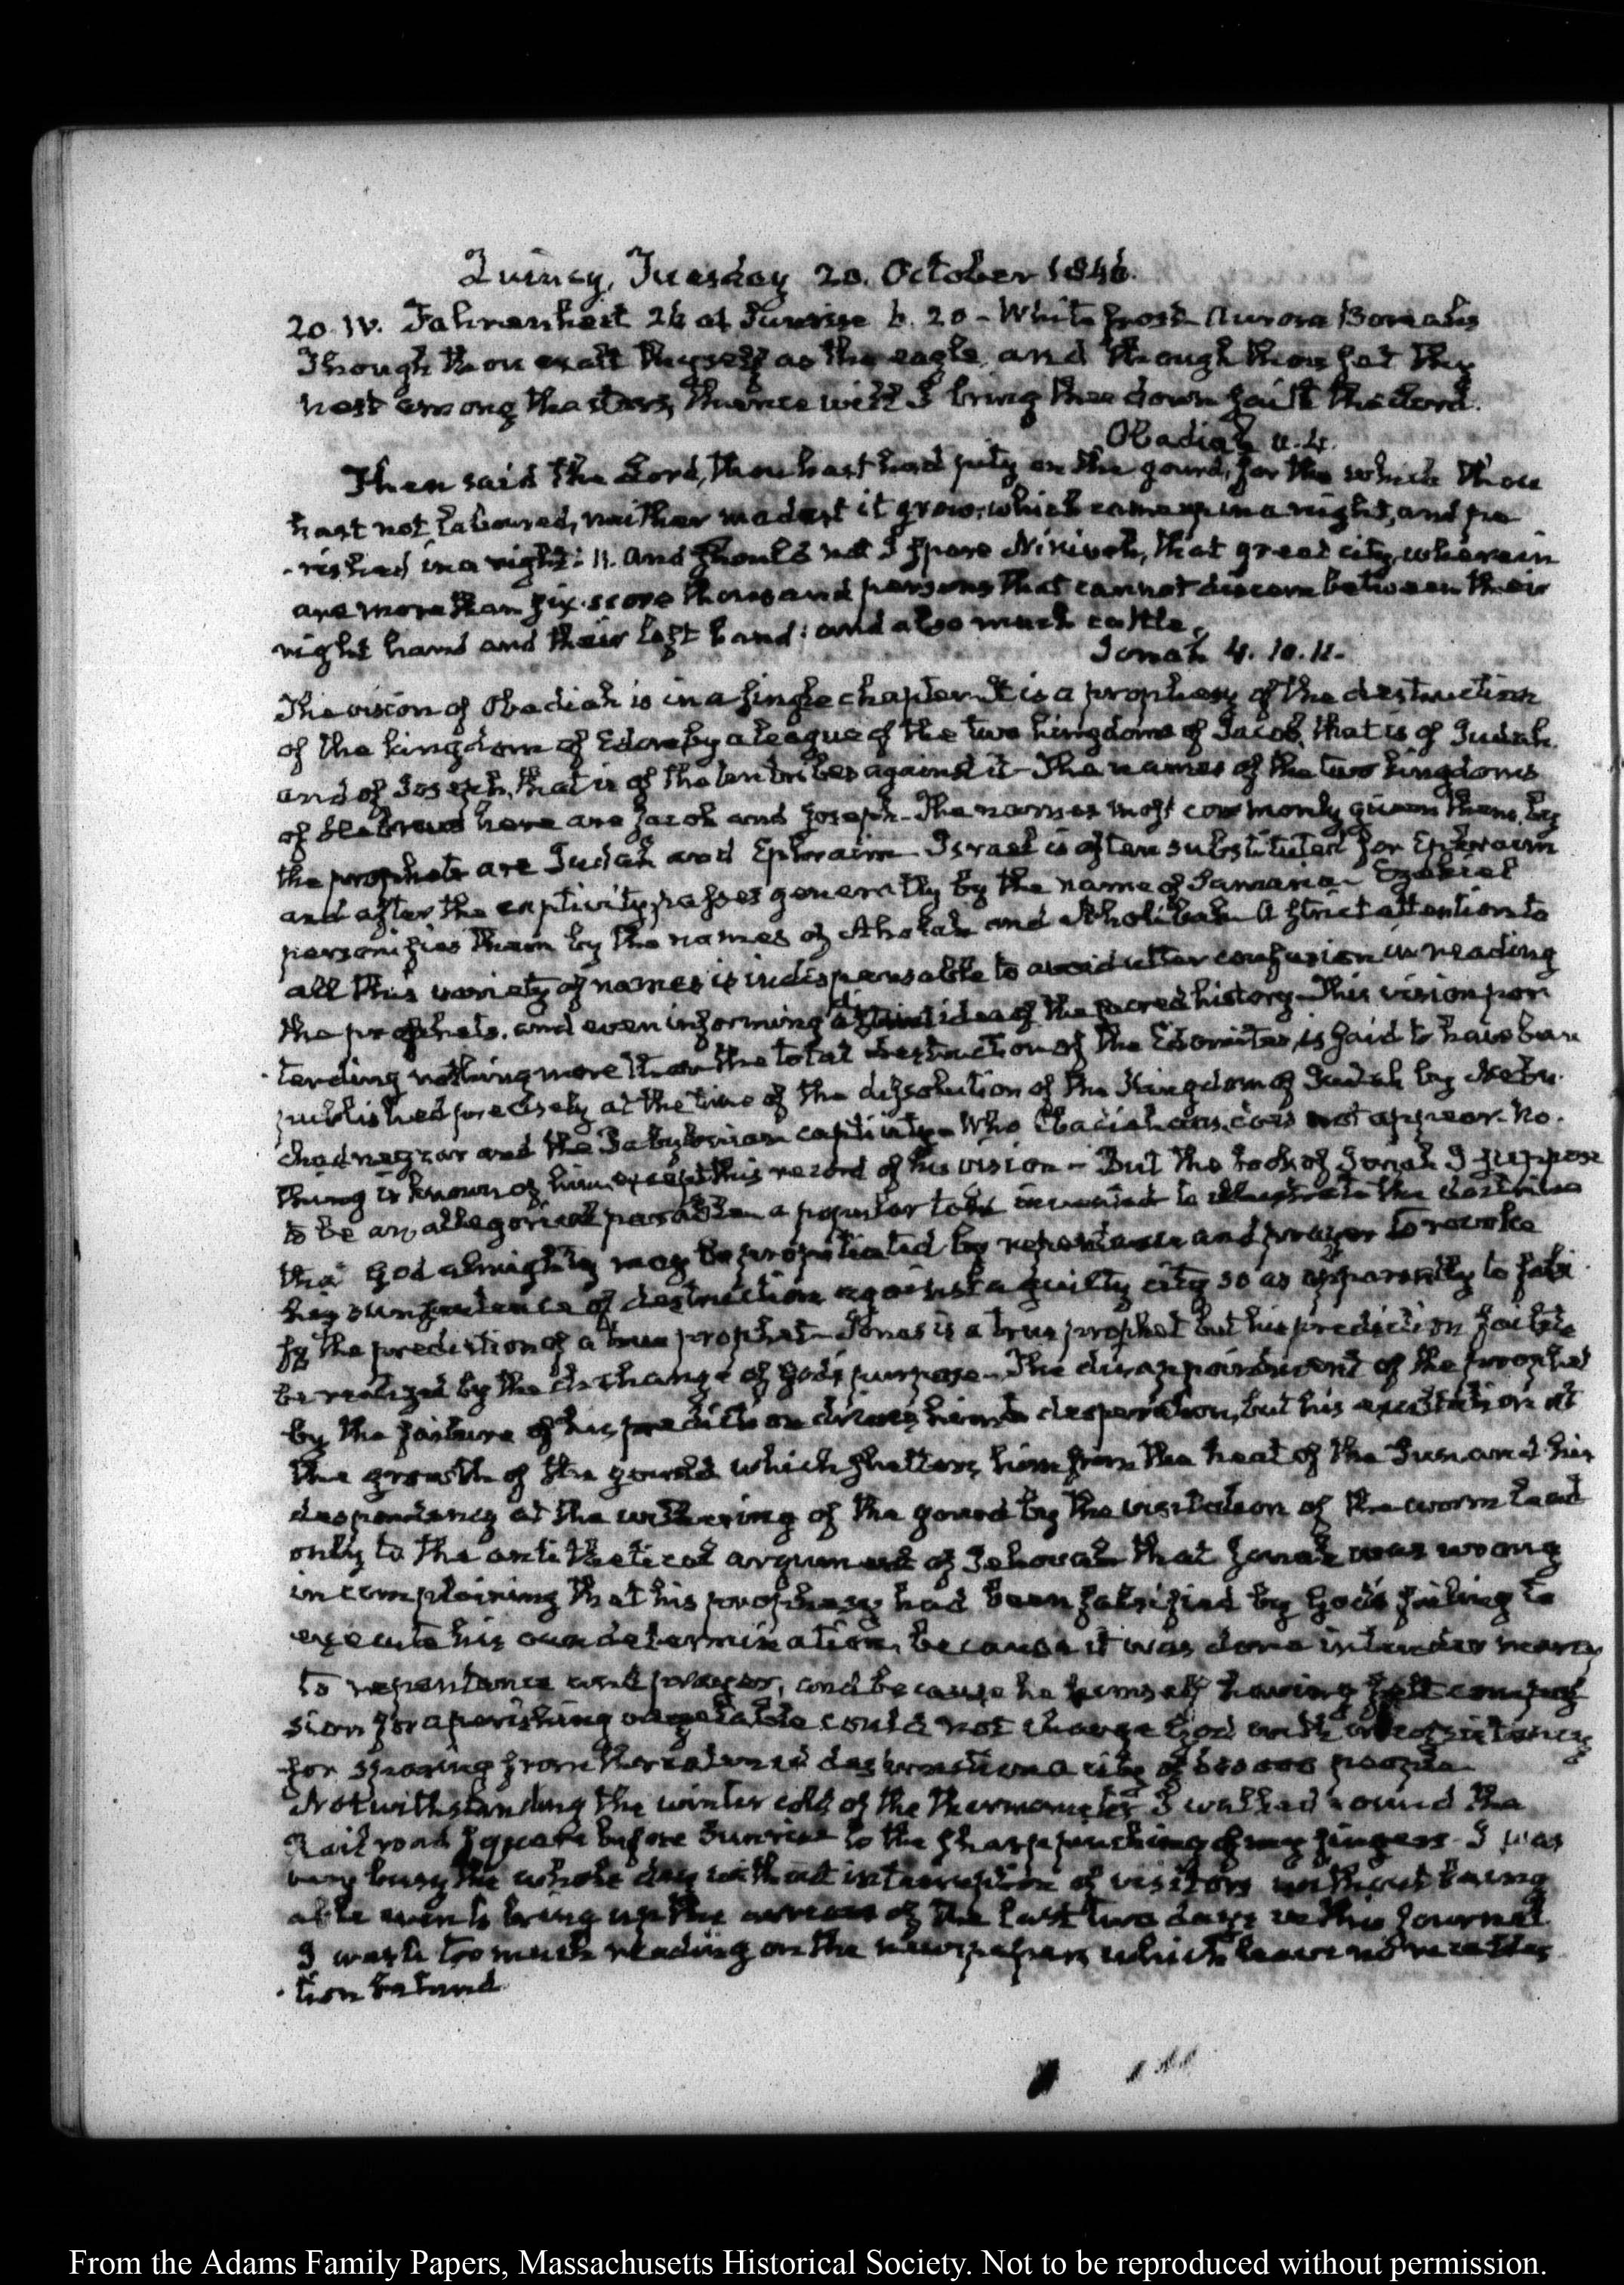 Quincy, Tuesday 20. October 1846.
20. IV. Fahrenheit 26 at Sunrise 6. 20 - White frost Aurora Borealis
Though thou exalt thyself as the eagle, and though thou set thy
nest among the stars, thence will I bring thee down saith the Lord.
Obadiah v. 4.
Then said the Lord, thou hast had pity on the gourd, for the which thou
hast not laboured, neither madest it grow; which came up in a night, and pe
-rished in a night: 11. and should not I spare Niniveh, that great city, wherein
are more than six-score thousand persons that cannot discern between their
right hand and their left hand; and also much cattle.
Jonah 4. 10. 11.
The vision of Obadiah is in a single chapter. It is a prophesy of the destruction
of the kingdom of Edom by a league of the two kingdoms of Jacob, that is of Judah.
and of Joseph, that is of the ten tribes against it - The names of the two kingdoms
of Hebrews here are Jacob and Joseph - The names most commonly given them, by
the prophets are Judah and Ephraim - Israel is often substituted for Ephraim
and after the captivity passes generally by the name of Samaria - Ezekiel
personifies them by the names of Aholah and Aholibah - A strict attention to
all this variety of names is indispensable to avoid utter confusion in reading
the prophets, and even in forming a idea of the sacred history - This vision por
-tending nothing more than the total destruction of the Edomites, is said to have been
published precisely at the time of the dissolution of the Kingdom of Judah by Nebu
chadnezzar and the Babylonian captivity - Who Obadiah was, does not appear. No-
thing is known of him, except this record of his vision - But the book of Jonah I suppose
to be an allegorical parable a popular tale invented to illustrate the doctrine
that God almighty may be propitiated by repentance and prayer to revoke
his sentence of destruction against a guilty city so as apparently to falsi
fy the prediction of a true prophet - Jonas is a true prophet but his prediction fails to
be realized by the change of God's purpose - The disappointment of the prophet
by the failure of his prediction drives him to desperation, but his exultation at
the growth of the gourd which shelters him from the heat of the Sun and his
despondency at the withering of the gourd by the visitation of the worm lead
only to the antithetical argument of Jehovah that Jonah was wrong
in complaining that his prophesy had been falsified by God's failing to
execute his own determination, because it was done in tender mercy
to repentance and prayer, and because he himself having felt compas
sion for a perishing vegetable could not charge God with inconsistency
for sparing from threatened destruction a city of 600 000 people
Notwithstanding the winter cold of the thermometer I walked round the
Rail road square before sunrise to the sharp pinching of my fingers - I was
very busy the whole day without interruption of visitors without being
able even to bring up the arrears of the last two days in this journal
I waste too much reading on the newspapers which leave no recollec
-tion behind
From the Adams Family Papers, Massachusetts Historical Society. Not to be reproduced without permission.